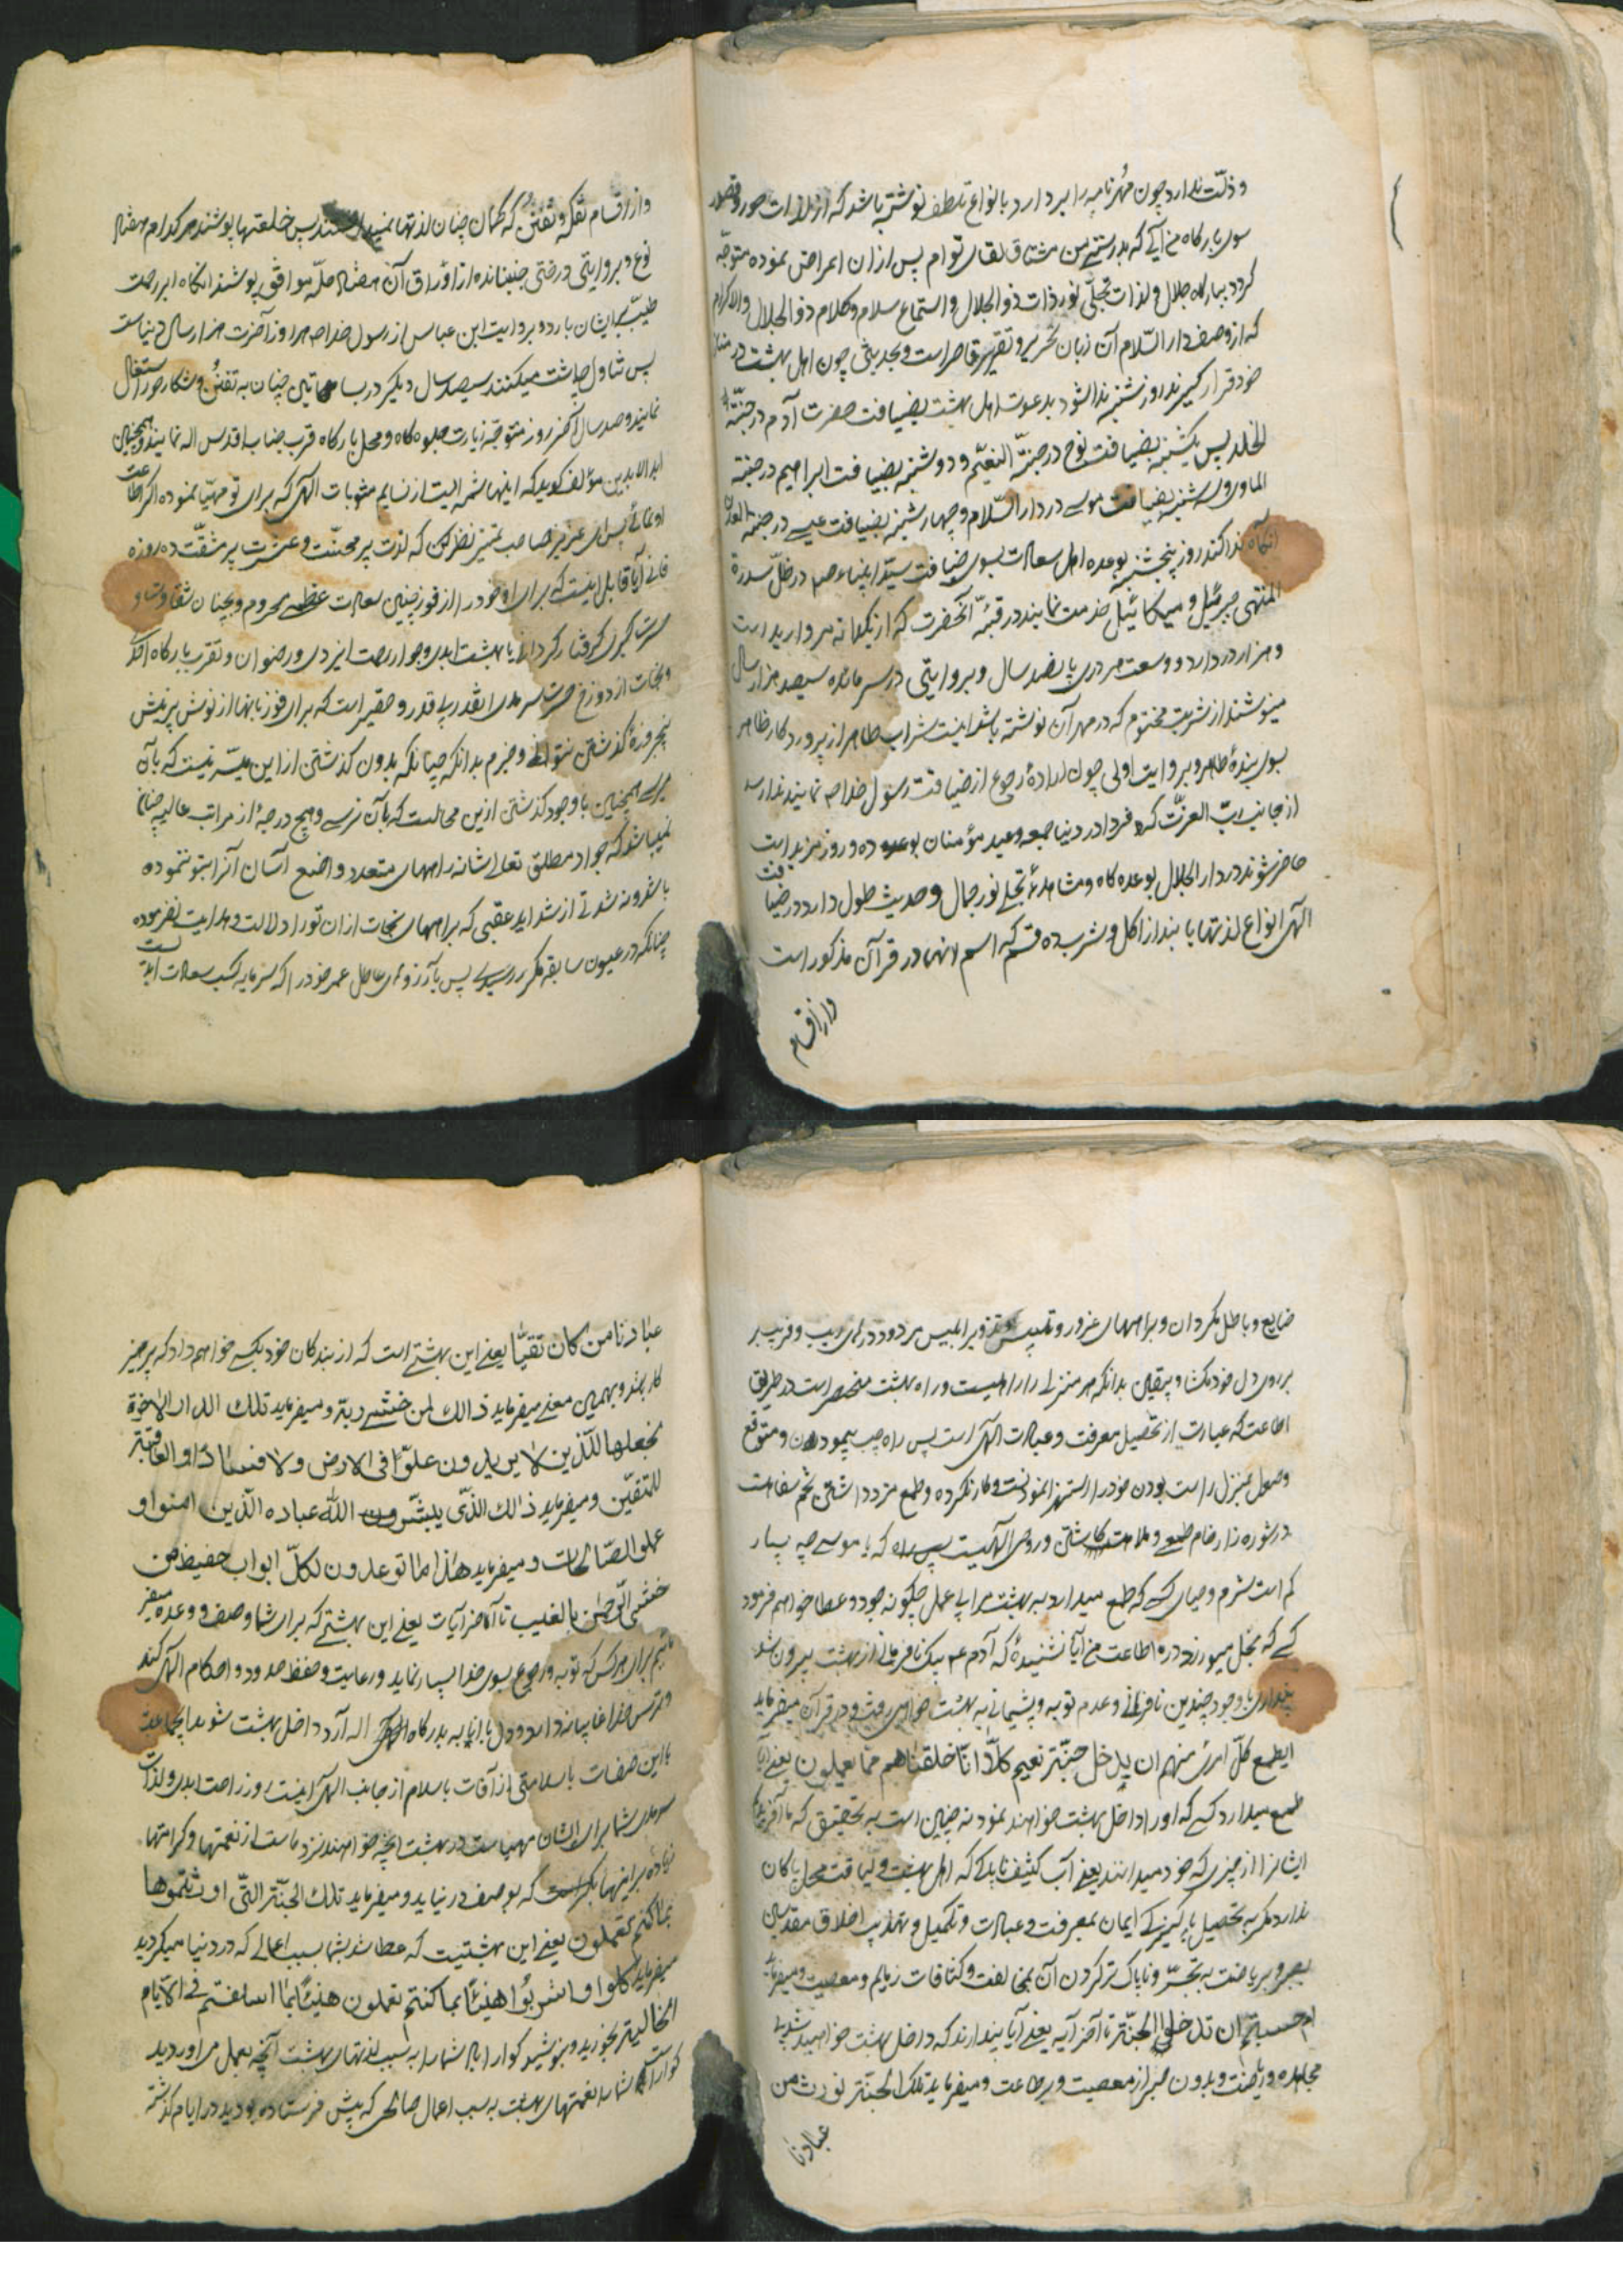 و ذلت ندارد چون مهر نامه را بردارد بانواع تلطف نوشته باشد که از لذات حور و قصور
سوی بارگاه من آی که بدرستی من مشتاق لقای توام پس از ان اعراض نموده متوجّه
گردد ببارگاه جلال و لذات تجلّی نور ذات ذو الجلال و استماع سلام و کلام ذو الجلال والاکرام
که از وصف دار السّلام آن زبان تحریر و تقریر قاصر است و بحدیثی چون اهل بهشت در منازل
خود قرار گیرند روز شنبه ندا شود بدعوت اهل بهشت بضیافت حضرت آدم در جنّة
الخلد پس یکشنبه بضیافت نوح در جنّة النعیّم و دوشنبه بضیافت ابراهیم در جنّة
الماوی و سه شنبه بضیافت موسی در دار السّلام و چهارشنبه بضیافت عیسی در جنّة العدن
آنگاه ندا کند روز پنجشنبه بوعده اهل سعادت بسوی ضیافت سیّد انبیاء صم در ظلّ سدرة
المنتهی جبرئیل و میکائیل خدمت نمایند در قبّهٔ آنحضرت که از یکدانه مروارید است
و هزار در دارد و وسعت هر دری پانصد سال و بروایتی در سر مائده سیصد هزار سال
مینوشند از شربت مختوم که در مهر آن نوشته باشد اینست شراب طاهر از پروردکار طاهر
بسوی بندهٔ طاهر و بروایت اولی چون ارادهٔ رجوع از ضیافت رسول خدا صم نمایند ندا رسد
از جانب ربّ العزّت که فردا در دنیا جمعه و عید مؤمنان بوعده ده و روز مزید است
حاضر شوند در دار الجلال بوعده کاه و مشاهدهٔ تجلی نور جمال و حدیث طول دارد در ضیافت
الهی انواع لذتها یابند از اکل و شرب ده قسم که اسم انها در قرآن مذکور است
و از اقسام
و از اقسام تفکّه و تفنّن که کمان چنان لذتها نمی‌داشتند پس خلعتها پوشند هر کدام هفتاد
نوع و بروایتی درختی جنبانده از اوراق آن هفتاد حلّه موافق پوشند انگاه ابر رحمت
طیّب بر ایشان بارد و بروایت ابن عباس از رسول خدا صم هر روز آخرت هزار سال دنیاست
پس تناول چاشت میکنند سیصد سال دیکر در بساتین چنان به تفنّن و شکار حور اشتغال
نمایند و صد سال آخر روز متوجّه زیارت جلوه کاه و محل بارکاه قرب جناب اقدس اله نمایند و همچنین
ابد الابدین مؤلف کوید که اینها شمه ایست از نسایم مثوبات الهی که برای تو مهیّا نموده اکر اطاعت
او نمائی پس ای عزیز صاحب تمیز نظر کن که لذت پر محنت و عشرت پر مشقّت ده روزه
فانی آیا قابل اینست که برای او خود را از فوز چنین سعادت عظمی محروم و بچنان شقاوت و
حسرت کبری کرفتار کردانی یا بهشت ابدی و جوار رحمت ایزدی و رضوان و تقرب بارکاه احد
و نجات از دوزخ حسرت سرمدی انقدر بی قدر و حقیر است که برای فوز بانها از نوش پر نیش
پنجروزهٔ کذشتن نتوانی و جزم بدانکه چنانکه بدون کذشتن از این میسّر نیست که بآن
برسی همچنین با وجود کذشتن ازین محالست که بآن نرسی و هیچ درجهٔ از مراتب عالیه چنان
نمیباشد که جواد مطلق تعالی شانه راههای متعدد واضع آسان آنرا بتو ننموده
باشد و نه شدتی از شداید عقبی که براههای نجات ازان تو را دلالت و هدایت نفرموده
چنانکه در عیون سابقه مکرر رسیدی پس بآرزوهای عاطل عمر خود را که سرمایه کسب سعادت ابدیست
ضایع و باطل مکردان و براههای غرور و تلبیس و تزویر ابلیس مردود درهای ریب و فریب بر
بر روی دل خود مکشا و بیقین بدانکه هر منزلی را راهیست و راه بهشت منحصر است در طریق
اطاعت که عبارت از تحصیل معرفت و عبادت الهی است پس راه چپ پیمودن و متوقع
وصول بمنزل راست بودن خود را استهزا نمودنست و کار نکرده و طمع مزد داشتن تخم سفاهت
در شوره زار خام طمعی و ملامت کاشتن و روی الهیت پس راه که یا موسی چه بسیار
کم است شرم و حیای کسی که طمع میدارد به بهشت مرا بی عمل چکونه جود و عطا خواهم فرمود
کسی که بخل میورزد در اطاعت من آیا نشنیدهٔ که آدم عم بیک نافرمانی از بهشت بیرون شد
پنداری با وجود چندین نافرمانی و عدم توبه و پشیمانی به بهشت خواهی رفت و در قرآن میفرماید
ایطمع کلّ امرئ منهم ان یدخل جنّة نعیم کلاّ انّا خلقناهم ممّا یعلمون یعنی ایا
طمع میدارد کسی که اورا داخل بهشت خواهند نمود نه چنین است به تحقیق که ما آفریدیم
ایشانرا از چیزی که خود میدانند یعنی آب کثیف ناپاکی که اهل بهشت و لیاقت محل پاکان
ندارد مکر به تحصیل پاکیزکی ایمان بمعرفت و عبادت و تکمیل و تهذیب اخلاق مقدسین
بصبر و بریاضت به تجسّر و ناپاک تر کردن آن بمخالفت و کثافات ذمایم و معصیت و میفرماید
ام حسبتم ان تدخلوا الجنّة تا آخر آیه یعنی آیا پندارند که داخل بهشت خواهید شد بی
مجاهده و ریاضت و بدون صبر از معصیت و بر طاعت و میفرماید تلک الجنّة نورث من
عبادنا
عبادنا من کان تقیّا یعنی این بهشتی است که از بندکان خود بکسی خواهم داد که پرهیز
کار باشد و بهمین معنی میفرماید ذالک لمن خشی ربّه و میفرماید تلک الدار الاخرة
نجعلها للّذین لا یریدون علوّا فی الارض ولا فسادا و العاقبة
للمتقیّن و میفرماید ذالک الذّی یبشّر الله عباده الّذین امنوا و
عملوا الصّالحات و میفرماید هذا ما توعدون لکلّ اوّاب حفیظ من
خشی الرّحمن بالغیب تا آخر آیات یعنی این بهشتی که برای شما وصف و وعده میفر
مائیم برای هر کس که توبه و رجوع بسوی خدا بسیار نماید و رعایت و حفظ حدود و احکام الهی کند
و ترس خدا غایبانه دارد و دل با انابه بدرکاه اله آرد داخل بهشت شوید ایجماعت
با این صفات با سلامتی از آفات با سلام از جانب الهی اینست روز راحت ابدی و لذات
سرمدی شما برای ایشان مهیاست در بهشت انچه خواهند نزد ماست از نعمتها و کرامتها
زیاده بر اینها که بوصف در نیاید و میفرماید تلک الجنّة التّی اورثتموها
بما کنتم تعملون یعنی این بهشتیست که عطا شد بشما بسبب اعمالی که در دنیا میکردید
میفرماید کلوا و اشربوا هنیئا بما کنتم تعملون هنیئا بما اسلفتم فی الایّام
الخالیة بخورید و بنوشید کوارا باد شما را به سبب لذتهای بهشت آنچه بعمل می اوردید
کوارا شما را نعمتهای بهشت به سبب اعمال صالحی که پیش فرستاده بودید در ایام کذشته